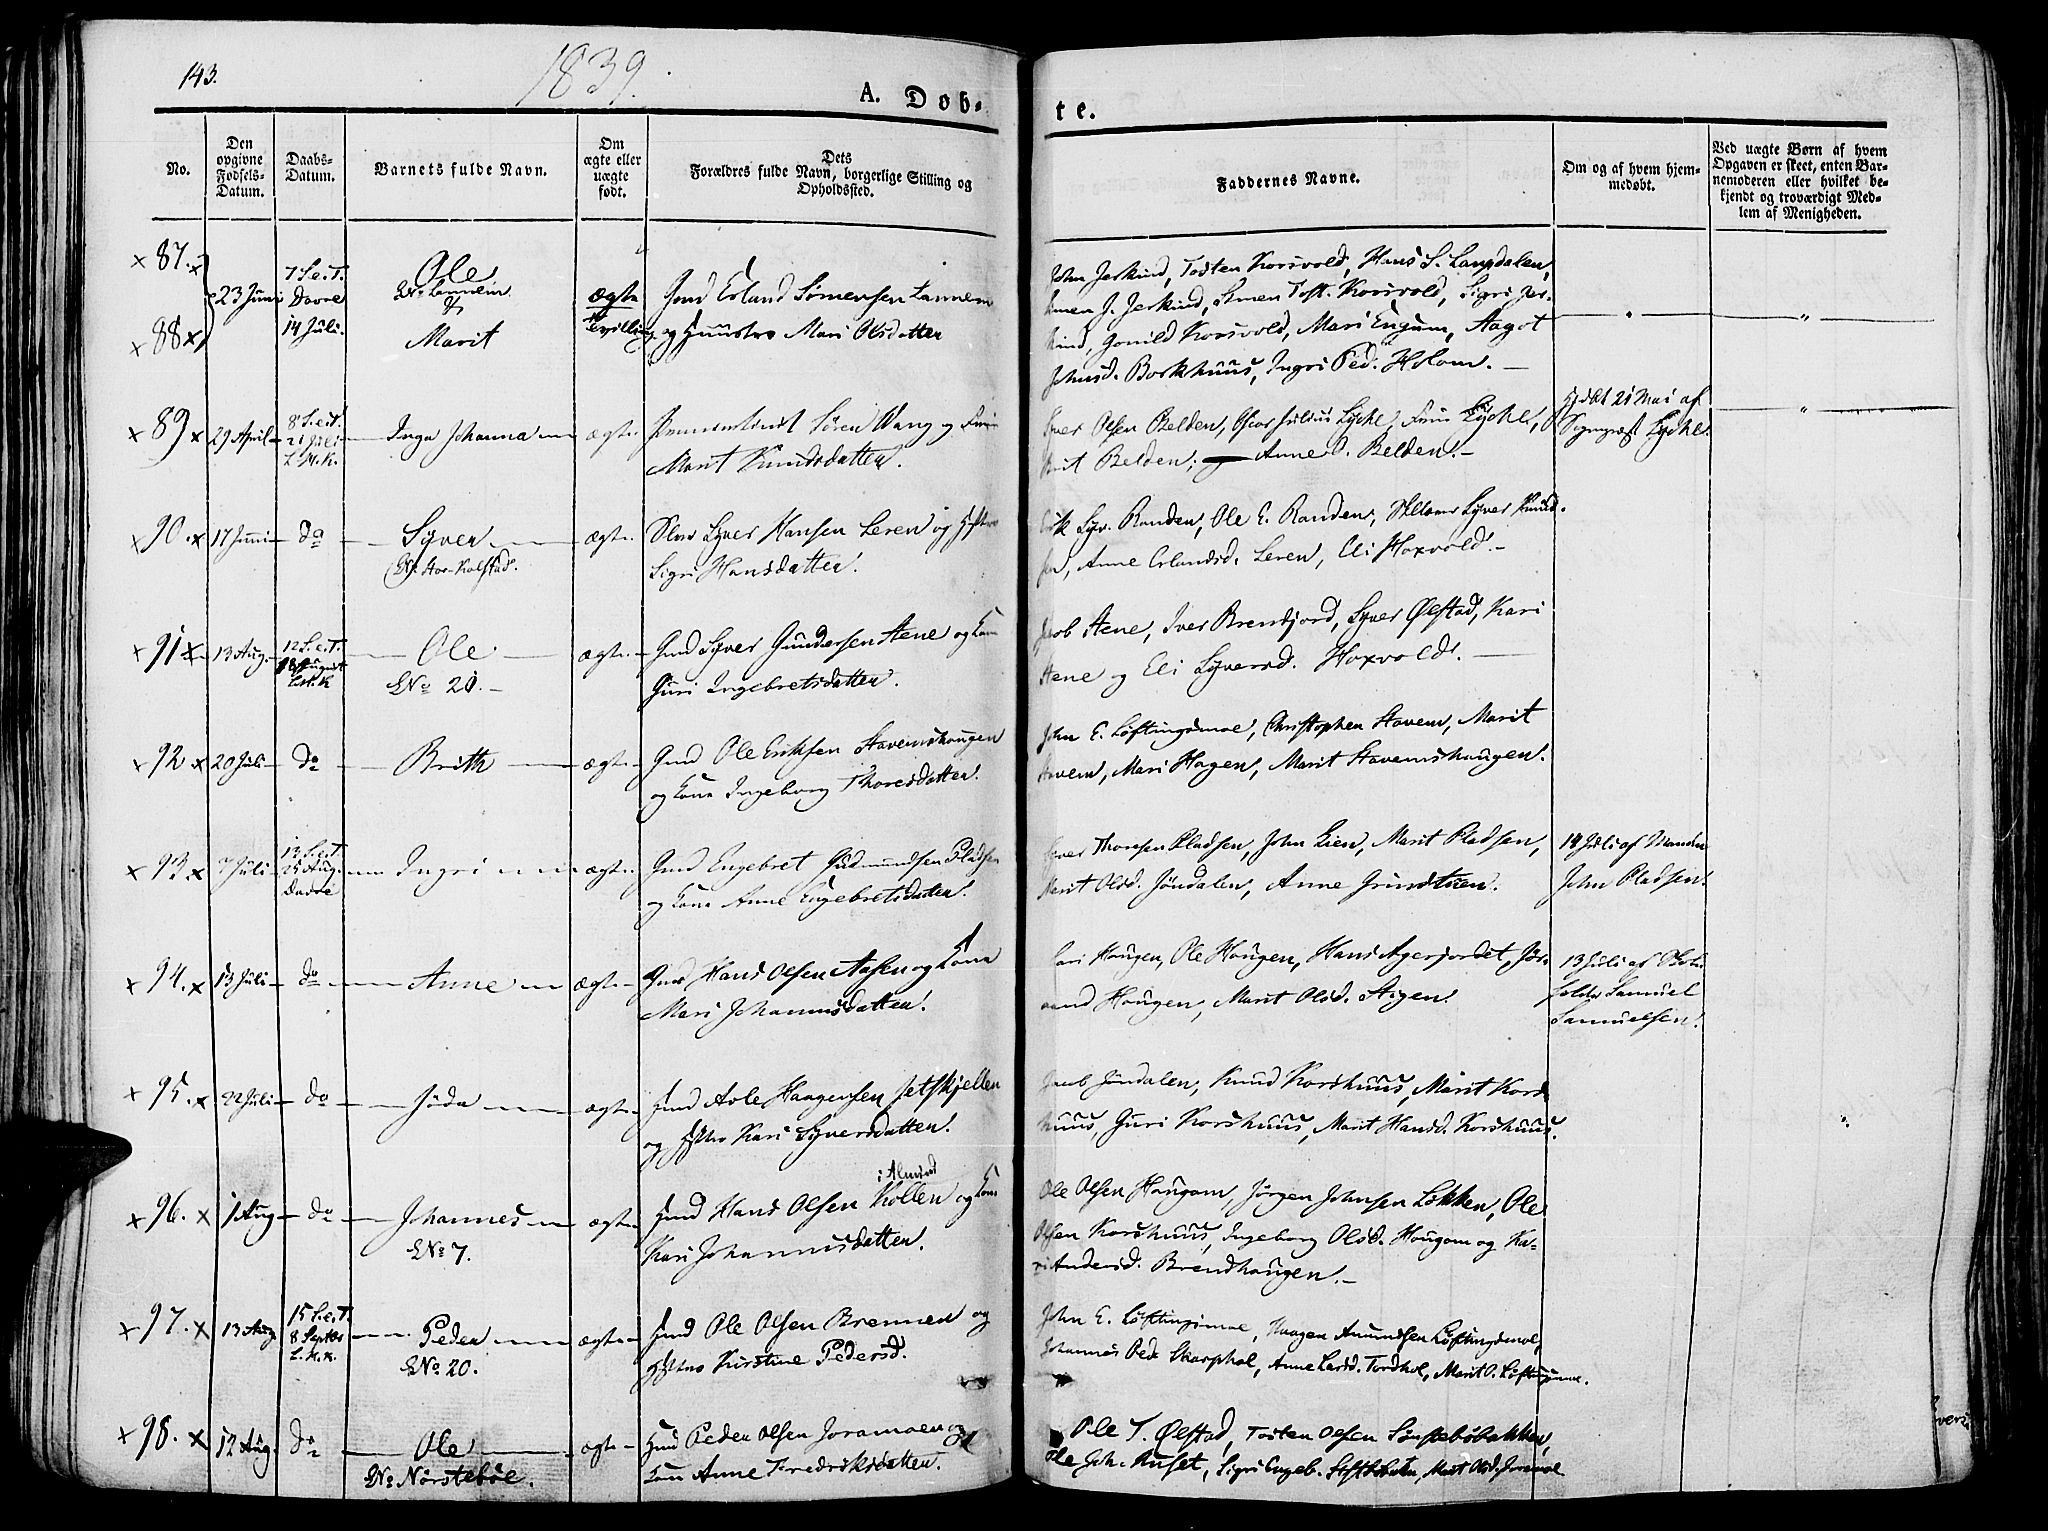 143.
1839.
A. Døb-
te.
No.
Den
opgivne
Fødsels-
Datum.
Daabs-
Datum.
Barnets fulde Navn.
Om
ægte eller
uægte
født.
Dets
Forældres fulde Navn, borgerlige Stilling og
Opholdssted.
Faddernes Navne.
Om og af hvem hjem-
medøbt.
Ved uægte Børn af hvem
Opgaven er skeet, enten Bar-
nemoderen eller hvilket be-
kjendt og troværdigt Med-
lem af Menigheden.
× 87. ×
× 88 ×
23 Juni
7 S.e.T.
Dovre
14 Juli.
Ole
&
Marit
ægte
Tvilling
Gmd Erland Simensen Lannem
og Huustro Mari Olsdatter
John Jerkind, Tosten Korsvold, Hans S. Langdalen,
Simen J. Jerkind, Simen Tost. Korsvold, Sigri Jer-
kind, Gonild Korsvold, Mari Engum, Aagot
Johnsd. Borkhuus, Ingri Ped. Holom. —
× 89 ×
29 April
8 S.e.T.
21 Juli
L.M.K.
Inga Johanna
ægte
Søren Wang og
Marit Knudsdatter.
Syver Olsen Belden, Oscar Julius Lyche, Lyche,
Brit Belden, og Anne D. Belden. —
21 Mai af
Sognepræst Lyche.
× 90. ×
17 Juni
do
Syver
No. Kolstad.
ægte
Syver Hansen Leren og Hstro
Sigri Hansdatter.
Erik Syv. Randen, Ole E. Randen, Syver Knud-
sen, Anne Erlandsd. Leren, Eli Hoxvold. —
× 91 ×
13 Aug.
12 S.e.T.
18 August
L.M.K
Ole
LNo 20. —
ægte
Gmd Syver Gundersen Stene og Kone
Guri Ingebretsdatter.
Jacob Stene, Iver Brenfjord, Syver Ølstad, Kari
Stene og Eli Syversd. Hoxvold. —
× 92. ×
20 Juli
do
Brith
ægte
Gmd Ole Eriksen Stavemshaugen
og Kone Ingeborg Thoresdatter.
John E. Løftingsmoe, Christopher Stavem, Marit
Stavem, Mari Hagen, Marit Stavemshaugen.
× 93. ×
7 Juli
13 S.e.T.
25 Aug.
Dovre
Ingri
ægte
Gmd Engebret Gudmundsen Pladsen
og Kone Anne Engebretsdatter.
Syver Thoresen Pladsen, John Lien, Marit Pladsen,
Marit Olsd. Jøndalen, Anne Grindstuen.
14 Juli af Manden
John Pladsen.
× 94. ×
13 Juli
do
Anne
ægte
Gmd Hans Olsen Aasen og Kone
Mari Johannesdatter.
Kari Haugen, Ole Haugen, Hans Agerjordet, Jør-
and Haugen, Marit Olsd. Stigen.
13 Juli af
Samuel
Samuelsen.
× 95. ×
22 Juli
do
Jøda
ægte
Hmd Avle Haagensen Jetskjellen
og Hstro Kari Syversdatter.
Jacob Jøndalen, Knud Korshuus, Marit Kors-
huus, Guri Korshuus, Marit Hansd. Korshuus.
× 96. ×
1 Aug
do
Johannes
LNo 7.
ægte
Hmd Hans Olsen Kollen og Kone
Kari Johannesdatter.
Ole Olsen Haugom, Jørgen Johnsen Løkken, Ole
Olsen Korshuus, Ingeborg Olsd. Haugom og Ka-
ri Andersd. Brendhaugen. —
× 97. ×
13 Aug.
15 S.e.T.
8 Septbr
L.K.K.
Peder
LNo 20.
ægte
Hmd Ole Olsen Brennen og
Hstro Kirstine Pedersd.
John E. Løftingsmoe, Haagen Amundsen Løftingsmoe,
Johannes Ped. Skarphol, Anne Larsd. Tordhol, Marit O. Løftingsmoe.
× 98. ×
12 Aug.
do
Ole
LNo Nørstebøe.
ægte
Hmd Peder Olsen Joramoen og
Kone Anne Fredriksdatter.
Ole T. Ølstad, Tosten Olsen Sønstebøbakken,
Ole Joh. Ruset, Sigri Engeb. Marit Olsd. Joramoe